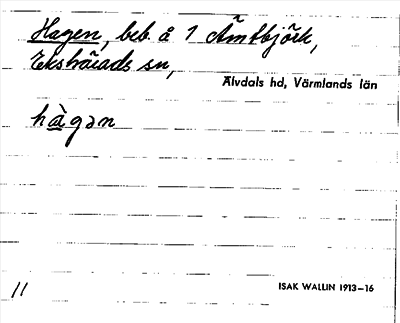 Hagen, beb. å 1 Ämtbjörk,
Ekshärads sn,
Älvdals hd, Värmlands län
hàgən
11
ISAK WALLIN 1913–16